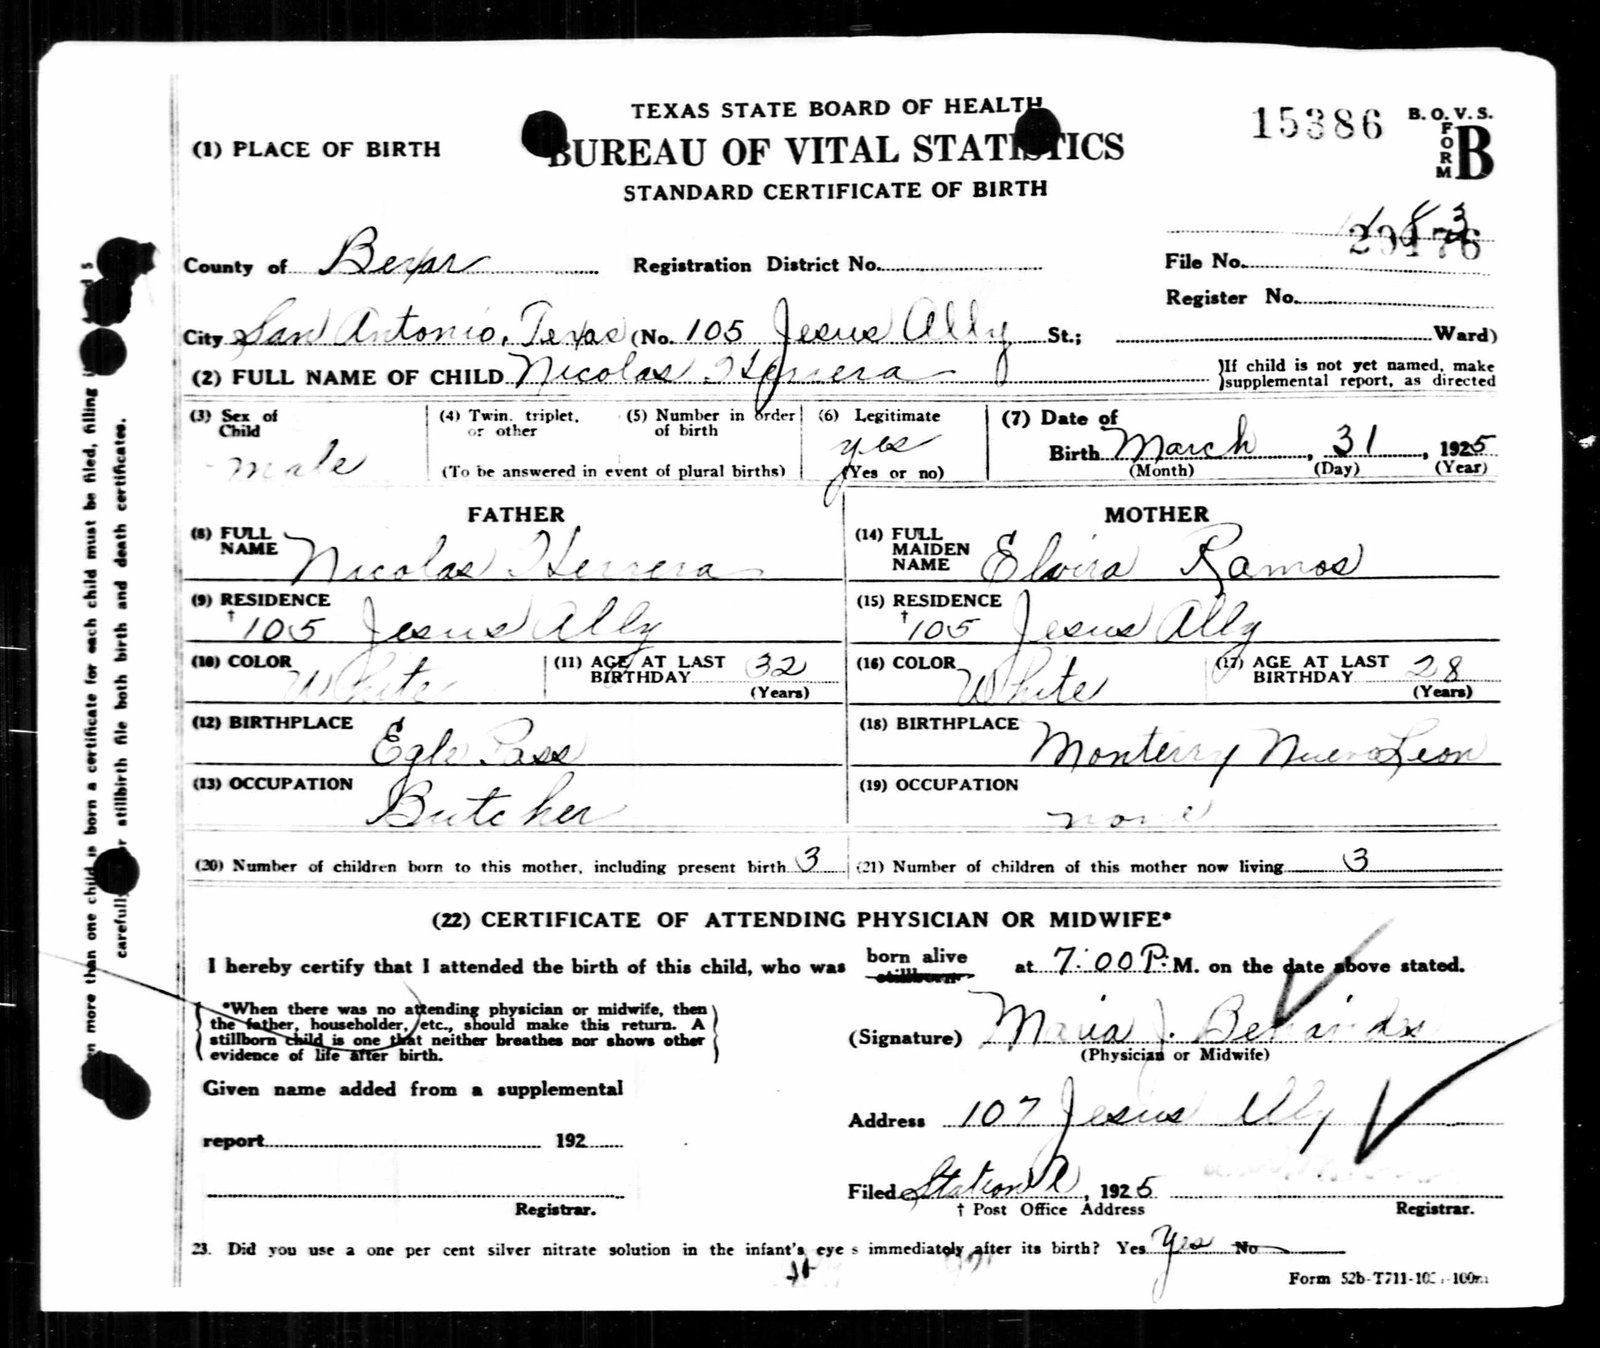 TEXAS STATE BOARD OF HEALTH
15386
B. O. V. S.
FORM B
(1) PLACE OF BIRTH
BUREAU OF VITAL STATISTICS
STANDARD CERTIFICATE OF BIRTH
County of Bexar
Registration District No.
File No. 20176
Register No.
City San Antonio, Texas (No. 105 Jesus Ally St.; Ward)
(2) FULL NAME OF CHILD Nicolas Herrera
}If child is not yet named, make
}supplemental report, as directed
(3) Sex of Child male
(4) Twin, triplet, or other
(5) Number in order of birth
(To be answered in event of plural births)
(6) Legitimate yes (Yes or no)
(7) Date of Birth March, 31, 1925
(Month) (Day) (Year)
FATHER
(8) FULL NAME Nicolas Herrera
(9) RESIDENCE
† 105 Jesus Ally
(10) COLOR White
(11) AGE AT LAST BIRTHDAY 32 (Years)
(12) BIRTHPLACE Egle Pass
(13) OCCUPATION Butcher
MOTHER
(14) FULL MAIDEN NAME Elvira Ramos
(15) RESIDENCE
† 105 Jesus Ally
(16) COLOR White
(17) AGE AT LAST BIRTHDAY 28 (Years)
(18) BIRTHPLACE Monterry Nuevo Leon
(19) OCCUPATION none
(20) Number of children born to this mother, including present birth 3
(21) Number of children of this mother now living 3
(22) CERTIFICATE OF ATTENDING PHYSICIAN OR MIDWIFE*
I hereby certify that I attended the birth of this child, who was born alive stillborn at 7:00 P. M. on the date above stated.
*When there was no attending physician or midwife, then
the father, householder, etc., should make this return. A
stillborn child is one that neither breathes nor shows other
evidence of life after birth.
(Signature) Maria J.
(Physician or Midwife)
Given name added from a supplemental
report 192
Registrar.
Address 107 Jesus Ally
Filed Station A, 1925
† Post Office Address
Registrar.
23. Did you use a one per cent silver nitrate solution in the infant's eyes immediately after its birth? Yes Yes No
Form 52b-T711-
more than one child is born a certificate for each child must be filed, filling
carefully stillbirth file both birth and death certificates.